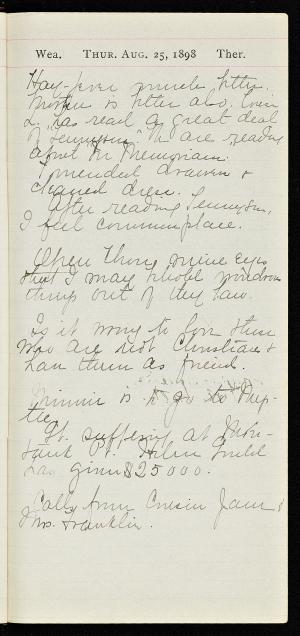 Wea. THUR. AUG. 25, 1898 Ther.
Hay-fever much better.
Mother is better also. Cousin
L. has read a great deal
of "Tennyson". We are reading
about "In Memoriam.
I mended drawers &
cleaned dress.
After reading Tennyson,
I feel commonplace.
Open Thou mine eyes
that I may behold wondrous
things out of thy law.
Is it wrong to love them
who are not Christians &
have them as friends.
Minnie is to go to
Gt. suffering at Mon-
tauk Pt. Helen Gould
has given $25000.
Calls from Cousin Jane &
Mrs. Franklin.